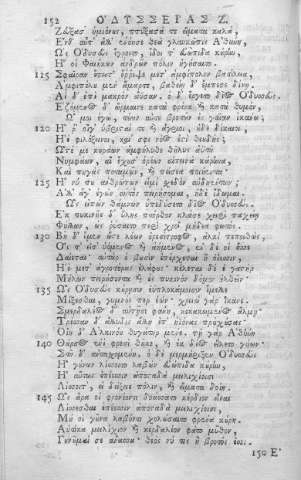 152 ΟΔΥΣΣΕΙΑΣ Ζ.
Ζεύξασ' ἡμιόνους, πτύξασά τε εἵματα καλὰ,
Ἔνθ' αὖτ' ἄλλ' ἐνόησε θεὰ γλαυκῶπις Ἀθήνη,
Ὡς Ὀδυσεὺς ἔγροιτο, ἴδοι τ' εὐώπιδα κούρην,
Ἥ οἱ Φαιήκων ἀνδρῶν πόλιν ἡγήσαιτο.
115 Σφαῖραν ἔπειτ' ἔρριψε μετ' ἀμφίπολον βασίλεια,
Ἀμφιπόλου μὲν ἅμαρτε, βαθείῃ δ' ἔμπεσε δίνῃ.
Αἱ δ' ἐπὶ μακρὸν ἄϋσαν. ὁ δ' ἔγρετο δῖος Ὀδυσσεύς.
Ἑζόμενος δ' ὥρμαινε κατὰ φρένα καὶ κατὰ θυμόν,
Ὤ μοι ἐγὼ, τέων αὖτε βροτῶν ἐς γαῖαν ἱκάνω;
120 Ἤ ῥ' οἵ γ' ὑβρισταί τε καὶ ἄγριοι, οὐδὲ δίκαιοι,
Ἠὲ φιλόξεινοι, καί σφιν νόος ἐστὶ θεουδής;
Ὥστε με κουράων ἀμφήλυθε θῆλυς ἀϋτὴ
Νυμφάων, αἳ ἔχουσ' ὀρέων αἰπεινὰ κάρηνα,
Καὶ πηγὰς ποταμῶν, καὶ πίσεα ποιήεντα·
125 Ἤ νύ που ἀνθρώπων εἰμὶ σχεδὸν αὐδηέντων;
Ἀλλ' ἄγ' ἐγὼν αὐτὸς πειρήσομαι, ἠδὲ ἴδωμαι.
Ὣς εἰπὼν θάμνων ὑπεδύσετο δῖος Ὀδυσσεύς.
Ἐκ πυκινῆς δ' ὕλης πτόρθον κλάσε χειρὶ παχείῃ
Φύλλων, ὡς ῥύσαιτο περὶ χροῒ μήδεα φωτός.
130 Βῆ δ' ἴμεν ὥστε λέων ὀρεσίτροφος, ἀλκὶ πεποιθὼς,
Ὅς τ' εἶσ' ὑόμενος καὶ ἀήμενος, ἐν δέ οἱ ὄσσε
Δαίεται· αὐτὰρ ὁ βουσὶν ἐπέρχεται ἢ ὀΐεσσιν,
Ἠὲ μετ' ἀγροτέρας ἐλάφους· κέλεται δέ ἑ γαστὴρ
Μήλων πειρήσοντα καὶ ἐς πυκινὸν δόμον ἐλθεῖν·
135 Ὣς Ὀδυσεὺς κούρῃσιν ἐϋπλοκάμοισιν ἔμελλε
Μίξεσθαι, γυμνός περ ἐών· χρειὼ γὰρ ἵκανε.
Σμερδαλέος δ' αὐτῇσι φάνη, κεκακωμένος ἅλμῃ·
Τρέσσαν δ' ἄλλυδις ἄλλη ἐπ' ἠϊόνας προὐχούσας·
Οἴη δ' Ἀλκινόου θυγάτηρ μένε. τῇ γὰρ Ἀθήνη
140 Θάρσος ἐνὶ φρεσὶ θῆκε, καὶ ἐκ δέος εἵλετο γυίων·
Στῆ δ' ἄντα σχομένη. ὁ δὲ μερμήριξεν Ὀδυσσεὺς
Ἢ γούνων λίσσοιτο λαβὼν εὐώπιδα κούρην,
Ἢ αὔτως ἐπέεσσιν ἀποσταδὰ μειλιχίοισι
Λίσσοιτ', εἰ δείξειε πόλιν, καὶ εἵματα δοίη.
145 Ὣς ἄρα οἱ φρονέοντι δοάσσατο κέρδιον εἶναι
Λίσσεσθαι ἐπέεσσιν ἀποσταδὰ μειλιχίοισι,
Μή οἱ γοῦνα λαβόντι χολώσαιτο φρένα κούρη.
Αὐτίκα μειλίχιον καὶ κερδαλέον φάτο μῦθον,
Γουνοῦμαί σε ἄνασσα· θεός νύ τις ἢ βροτός ἐσσι.
150 Εἰ